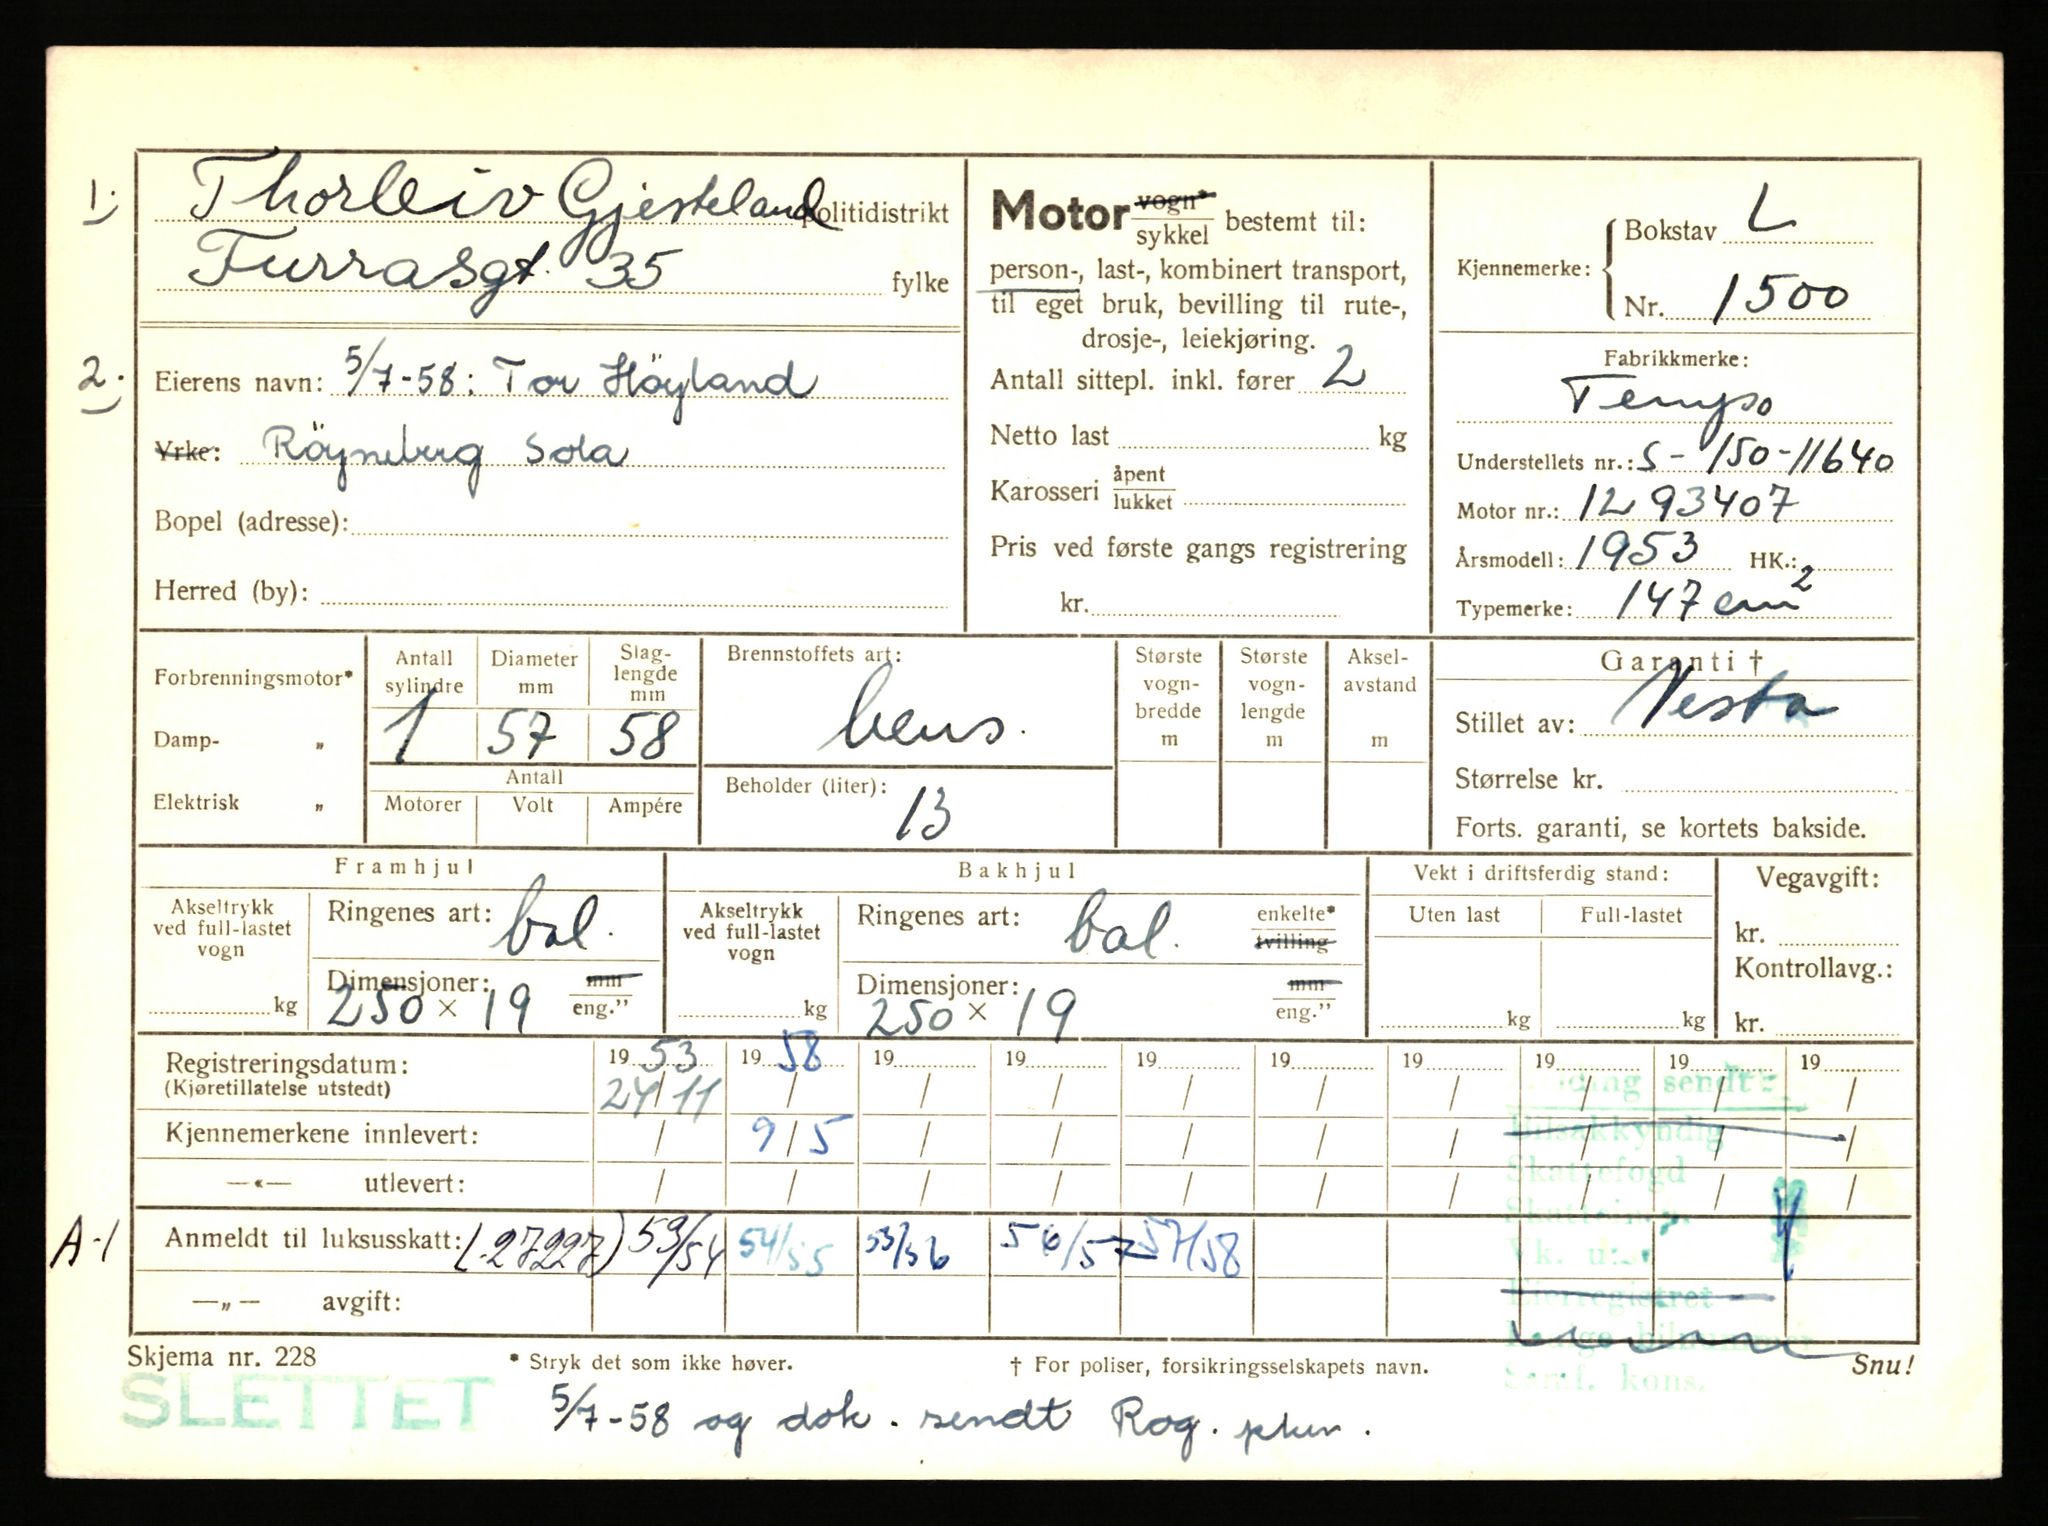 1. Thorleiv Gjesteland politidistrikt
Furrasgt. 35 fylke
2. Eierens navn: 5/7-58: Tor Höyland
Yrke: Röyneberg Sola
Bopel (adresse):
Herred (by):
Motor vogn* / sykkel bestemt til:
person-, last-, kombinert transport,
til eget bruk, bevilling til rute-,
drosje-, leiekjøring.
Antall sittepl. inkl. fører 2
Netto last kg
Karosseri åpent / lukket
Pris ved første gangs registrering
kr.
Kjennemerke: Bokstav L
Nr. 1500
Fabrikkmerke:
Tempo
Understellets nr.: S-150-11640
Motor nr.: 1293407
Årsmodell: 1953 HK.:
Typemerke: 147 cm2
Forbrenningsmotor*
Damp- „
Elektrisk „
Antall sylindre
1
Diameter mm
57
Slag-lengde mm
58
Antall
Motorer Volt Ampére
Brennstoffets art:
bens.
Beholder (liter):
13
Største vogn-bredde m
Største vogn-lengde m
Aksel-avstand m
Garanti †
Stillet av: Vesta
Størrelse kr.
Forts. garanti, se kortets bakside.
Framhjul
Akseltrykk ved full-lastet vogn
kg
Ringenes art: bal.
Dimensjoner: mm
250 × 19 eng.”
Bakhjul
Akseltrykk ved full-lastet vogn
kg
Ringenes art: bal. enkelte* tvilling
Dimensjoner: mm
250 × 19 eng.”
Vekt i driftsferdig stand:
Uten last Full-lastet
kg kg
Vegavgift:
kr.
Kontrollavg.:
kr.
Registreringsdatum: 19 53 19 58 19 19 19 19 19 19 19 19
(Kjøretillatelse utstedt) 24/11 / / / / / / / / /
Kjennemerkene innlevert: / 9/5 / / / / / / / /
—«— utlevert: / / / / / / / / / /
A-1 Anmeldt til luksusskatt: (27227) 53/54 54/55 55/56 56/57 57/58
—„— avgift:
sendt:
Bilsakkyndig
Skattefogd
Eierregistret
Samf. kons.
Skjema nr. 228 * Stryk det som ikke høver. † For poliser, forsikringsselskapets navn. Snu!
SLETTET
5/7-58 og dok. sendt Rog.